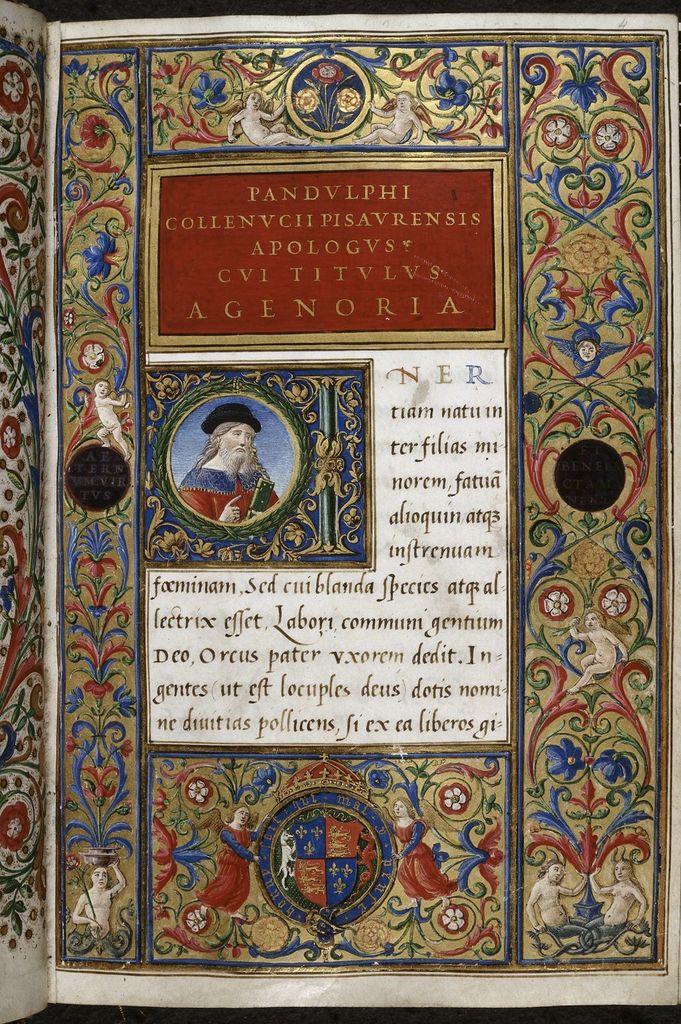 PANDVLPHI
COLLENVCII PISAVRENSIS
APOLOGVS
CVI TITVLVS
AGENORIA
INER
tiam natu in
ter filias mi-
norem, fatuā
alioquin atqȝ
instrenuam
fœminam, Sed cui blanda species atqȝ al-
lectrix esset, Labori, communi gentium
Deo, Orcus pater vxorem dedit. In-
gentes (ut est locuples deus) dotis nomi-
ne diuitias pollicens, si ex ea liberos gi-
AE
TERN
VM VIR
TVS
BENE
mal